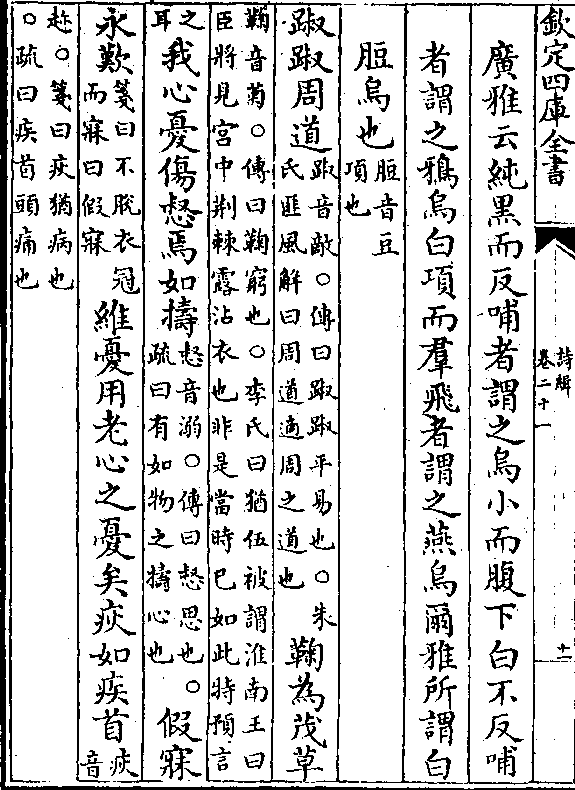 欽定四庫全書
詩緝
卷二十一
十二
廣雅云純黑而反哺者謂之烏小而腹下白不反哺
者謂之鴉烏白項而羣飛者謂之燕烏爾雅所謂白
脰烏也脰音豆
項也
踧踧周道踧音敵○傳曰踧踧平易也○朱
氏匪風解曰周道適周之道也鞫為茂草
鞫音菊○傳曰鞫窮也○李氏曰猶伍被謂淮南王曰
臣將見宮中荆棘露沾衣也非是當時已如此特預言
之
耳我心憂傷惄焉如擣惄音溺○傳曰惄思也○
疏曰有如物之擣心也假寐
永歎箋曰不脫衣冠
而寐曰假寐維憂用老心之憂矣疢如疾首疢
音
趁○箋曰疢猶病也
○疏曰疾首頭痛也